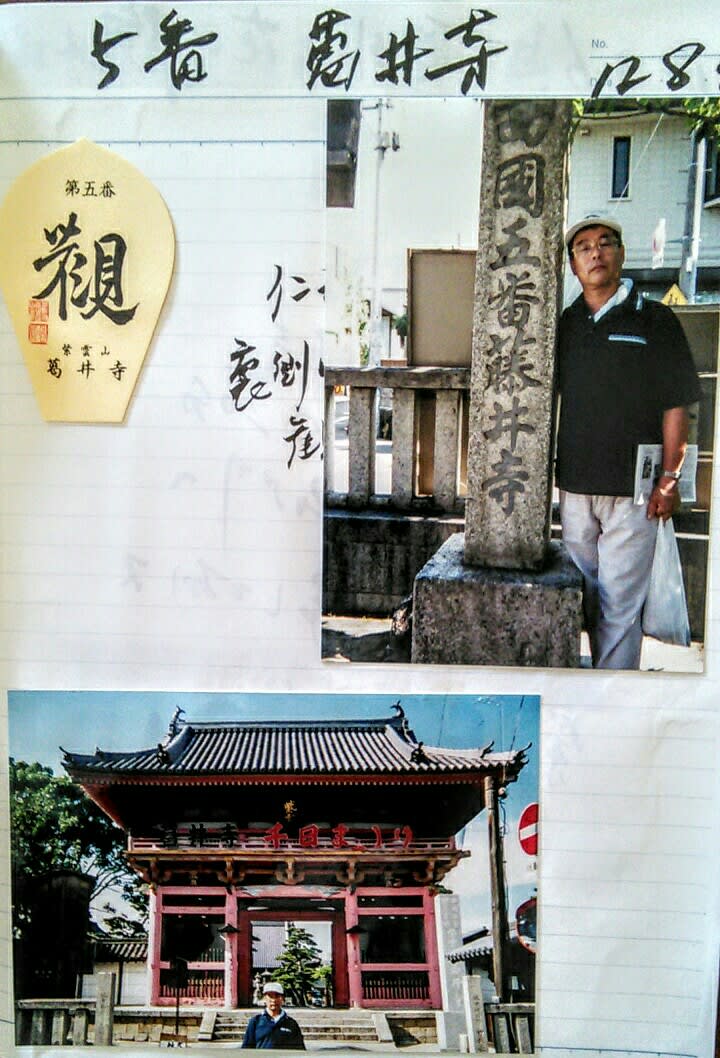 5番 葛井寺 12 8
No.
第五番
觀
紫雲山
葛井寺
仁
裏倒
國五番藤井寺
井寺 千日まつり